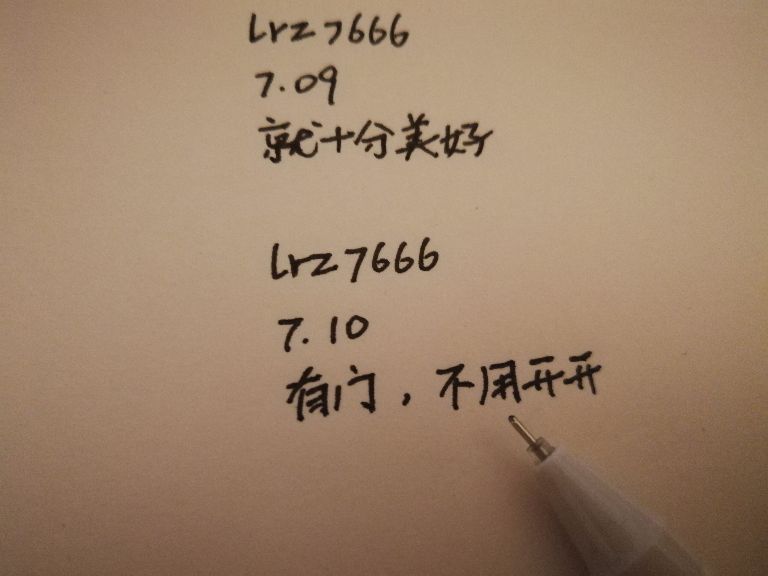 lrz7666
7.09
就十分美好
lrz7666
7.10
有门，不用开开